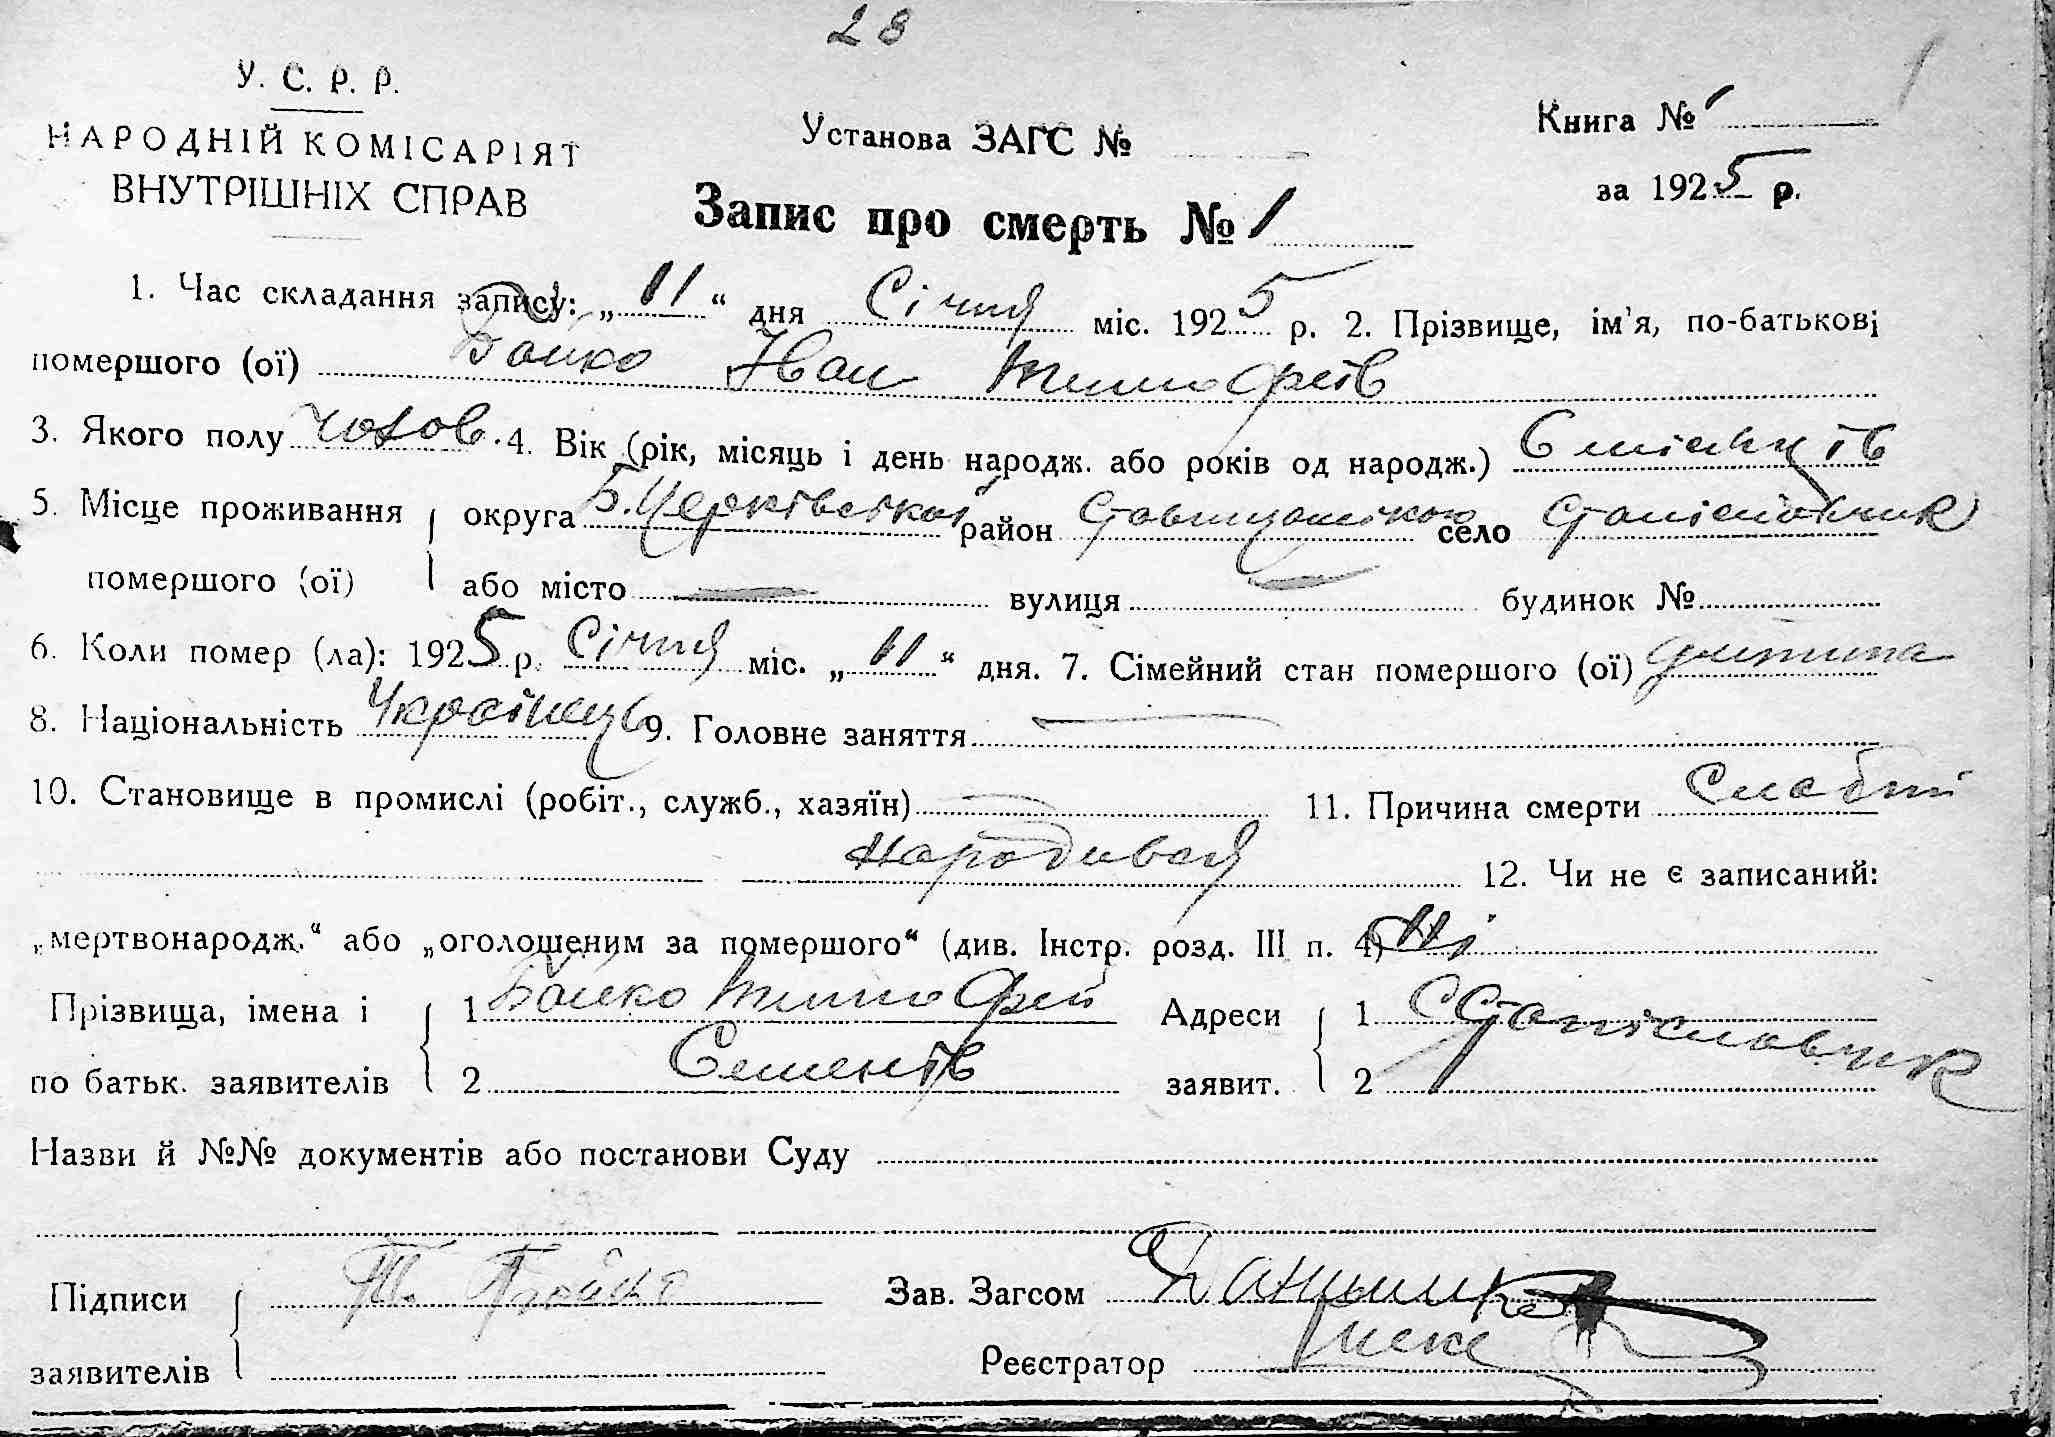 28
У. С. Р. Р.
НАРОДНІЙ КОМІСАРІЯТ
ВНУТРІШНІХ СПРАВ
Установа ЗАГС №
Книга № 1
за 1925 р.
Запис про смерть № 1
1. Час складання запису: „11“ дня Січня міс. 1925 р. 2. Прізвище, ім'я, по-батькові
помершого (ої) Бойко Иван Тимофеїв
3. Якого полу чолов. 4. Вік (рік, місяць і день народж. або років од народж.) 6 місяців
5. Місце проживання помершого (ої) округа Б.Церківської район село Станіславчик
або місто — вулиця — будинок №
6. Коли помер (ла): 1925 р. Січня міс. „11“ дня. 7. Сімейний стан помершого (ої) дитина
8. Національність Українець 9. Головне заняття —
10. Становище в промислі (робіт., служб., хазяїн) — 11. Причина смерти Слабий
народився 12. Чи не є записаний:
„мертвонародж.“ або „оголошеним за помершого“ (див. Інстр. розд. III п. 4) Ні
Прізвища, імена і по батьк. заявителів 1 Бойко Тимофей Адреси заявит. 1 С Станіславчик
2 Семенів 2
Назви й №№ документів або постанови Суду
Підписи заявителів Т. Бойко Зав. Загсом
Реєстратор